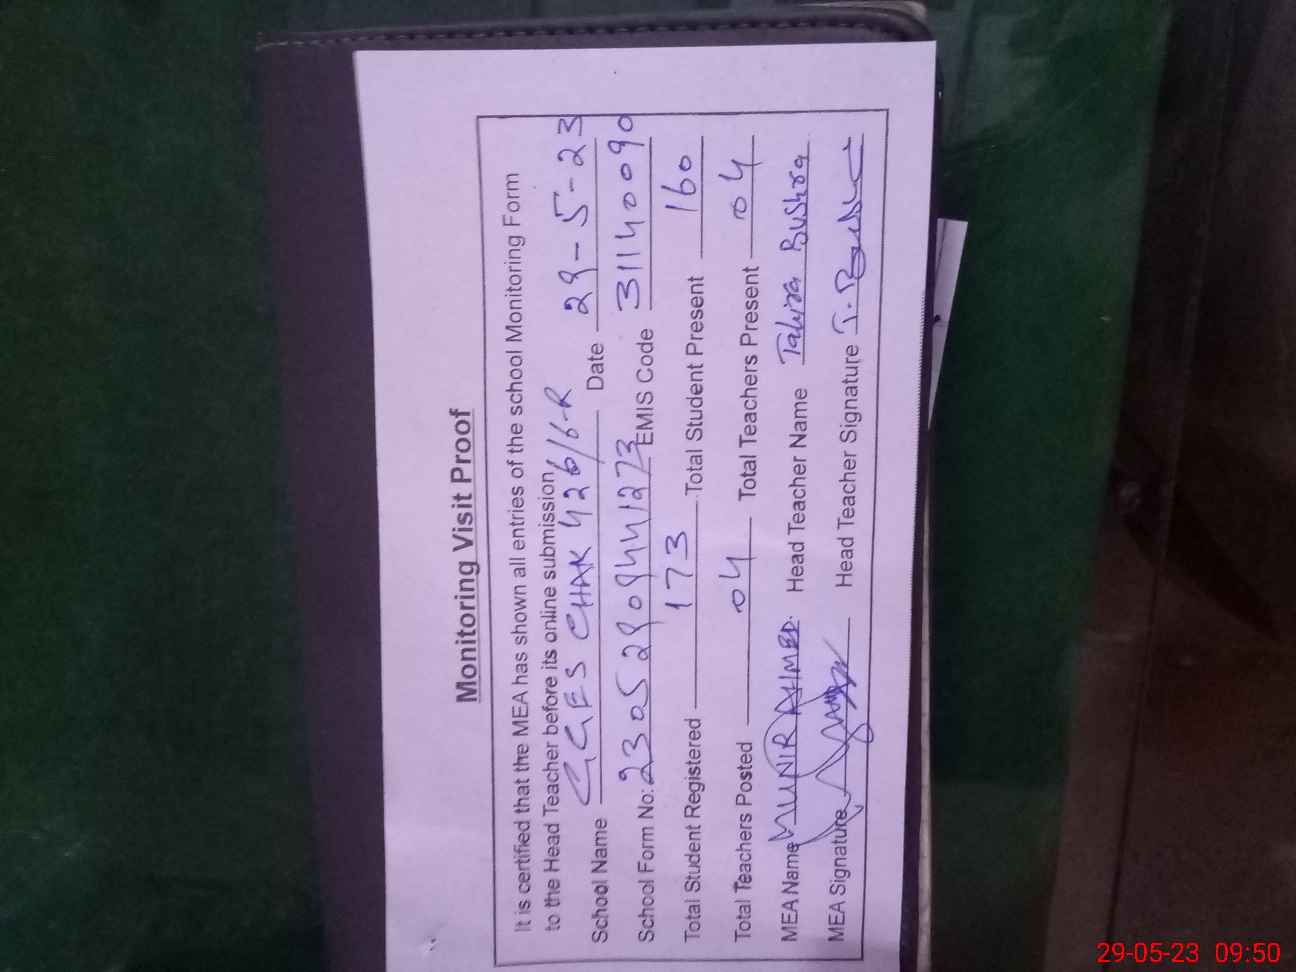 Monitoring Visit Proof
It is certified that the MEA has shown all entries of the school Monitoring Form
to the Head Teacher before its online submission
School Name GGES CHAK 426/6-R Date 29-5-23
School Form No: 2305290941273 EMIS Code 31140090
Total Student Registered 173 Total Student Present 160
Total Teachers Posted 04 Total Teachers Present 04
MEA Name MUNIR AHMED. Head Teacher Name Tahira Bushra
MEA Signature Head Teacher Signature
29-05-23 09:50